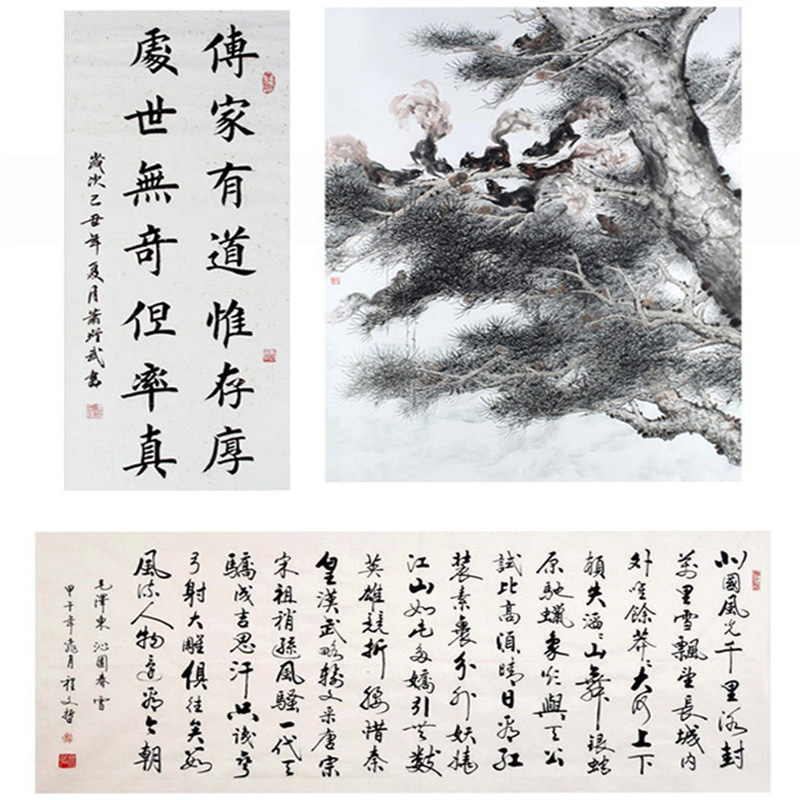 傳家有道惟存厚
處世無奇但率真
歲次己丑年夏月蕭武書
北國風光千里冰封
萬里雪飄望長城內
外惟餘莽々大河上下
頓失滔々山舞銀蛇
原馳蠟象欲與天公
試比高須晴日看紅
裝素裹分外妖嬈
江山如此多嬌引無數
英雄競折腰惜秦
皇漢武略輸文采唐宗
宋祖稍遜風騷一代天
驕成吉思汗只識彎
弓射大雕俱往矣數
風流人物還看今朝
毛澤東 沁園春雪
甲午年月程文哲書